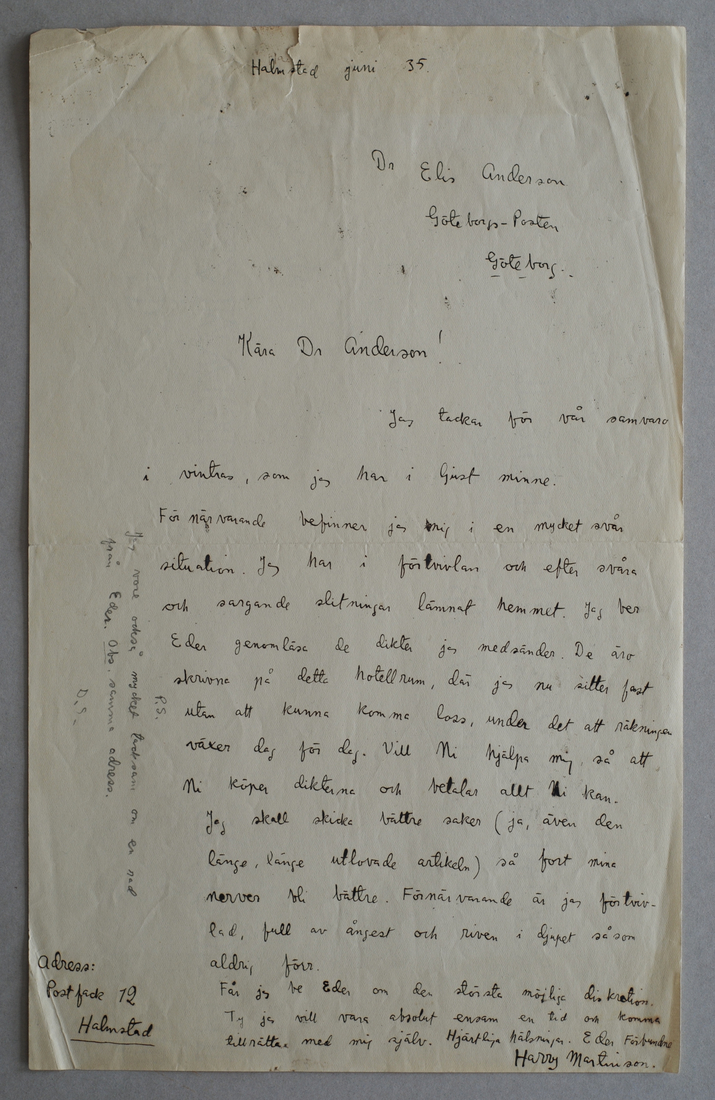 Halmstad juni 35.
Dr Elis Anderson
Göteborgs-Posten
Göteborg.
Kära Dr Anderson!
Jag tackar för vår samvaro
i vintras, som jag har i ljust minne.
För närvarande befinner jag mig i en mycket svår
situation. Jag har i förtvivlan och efter svåra
och sargande slitningar lämnat hemmet. Jag ber
Eder genomläsa de dikter jag medsänder. De äro
skrivna på detta hotellrum, där jag nu sitter fast
utan att kunna komma loss, under det att räkningen
växer dag för dag. Vill Ni hjälpa mig så att
Ni köper dikterna och betalar allt Ni kan.
Jag skall skicka bättre saker (ja, även den
länge, länge utlovade artikeln) så fort mina
nerver bli bättre. Förnärvarande är jag förtviv-
lad, full av ångest och riven i djupet såsom
aldrig förr.
Får jag be Eder om den största möjliga diskretion.
Ty jag vill vara absolut ensam en tid och komma
tillrätta med mig själv. Hjärtliga hälsningar. Eder Förbundne
Harry Martinson.
Adress:
Postfack 12
Halmstad
P.S.
Jag vore också mycket tacksam om en rad
från Eder. Obs. samma adress.
D.S.